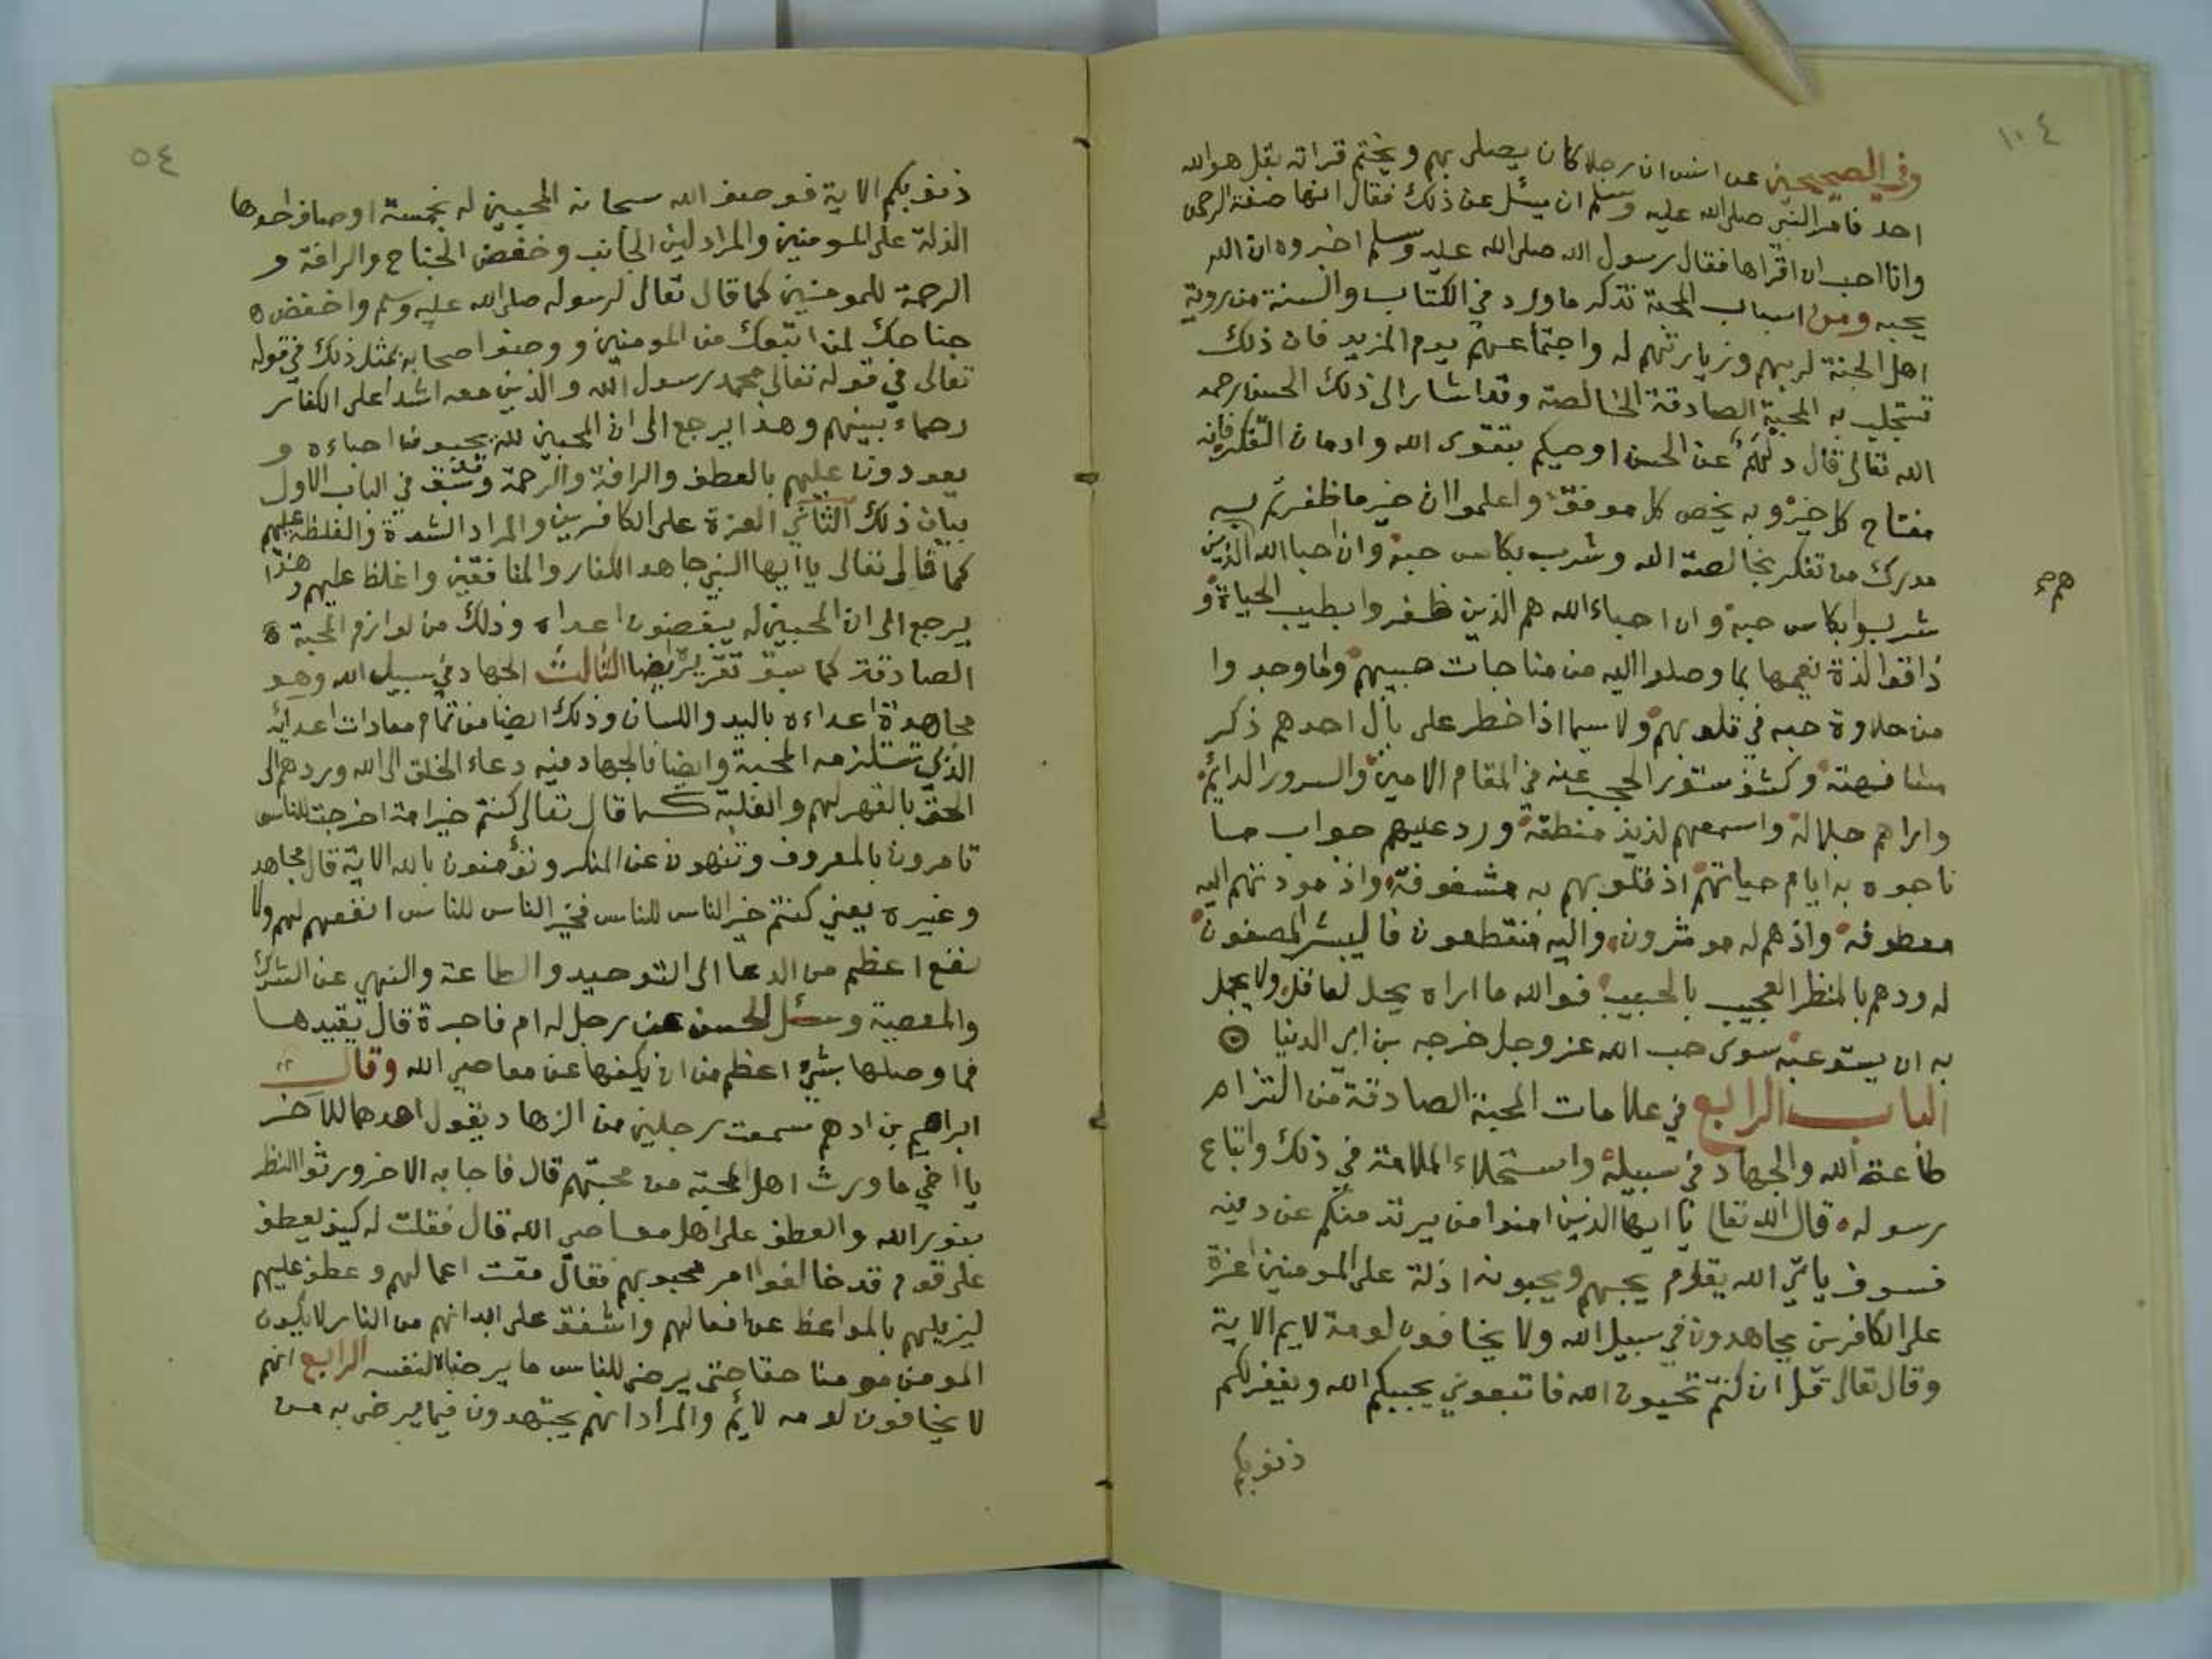 ١٠٤
وفي الصحيحين عن انس ان رجلا كان يصلي بهم ويختم قراته بقل هو الله
احد فامر النبي صلى الله عليه وسلم ان يسئل عن ذلك فقال انها صفة الرحمن
وانا احب ان اقراها فقال رسول الله صلى الله عليه وسلم اخبروه ان الله
يحبه ومن اسباب المحبة تذكر ما ورد في الكتاب والسنة من روية
اهل الجنة لربهم وزيارتهم له واجتماعهم يوم المزيد فان ذلك
تستجلب به المحبة الصادقة الخالصة وقد اشار الى ذلك الحسن رحمه
الله تعالى قال دلهم عن الحسن اوصيكم بتقوى الله وادمان التفكر فانه
مفتاح كل خير وبه يخص كل موفق واعلموا ان خير ما ظفرتم به
مدرك من تفكر بخالصة الله وشرب بكاس حبه وان احبا الله الذين
هم
شربوا بكاس حبه وان احباء الله هم الذين ظفروا بطيب الحياة و
ذاقوا لذة نعيمها بما وصلوا اليه من مناجات حبيبهم وما وجدوا
من حلاوة حبه في قلوبهم ولا سيما اذا خطر على بال احدهم ذكر
مشافهته وكشف ستور الحجب عنه في المقام الامين والسرور الدائم
واراهم جلاله واسمعهم لذيذ منطقه ورد عليهم جواب ما
ناجوه به ايام حياتهم اذ قلوبهم به مشغوفة واذ مودتهم اليه
معطوفه واذ هم له موثرون واليه منقطعون فاليبشر المصفون
له ودهم بالمنظر العجيب بالحبيب فوالله ما اراه يحل لعاقل ولا يجمل
به ان يستوعبه سوى حب الله عز وجل خرجه بن ابي الدنيا
الباب الرابع في علامات المحبة الصادقة من التزام
طاعة الله والجهاد في سبيله واستحلاء الملامة في ذلك واتباع
رسوله قال الله تعالى يا ايها الذين امنوا من يرتد منكم عن دينه
فسوف ياتي الله بقوم يحبهم ويحبونه اذلة على المومنين اعزة
على الكافرين يجاهدون في سبيل الله ولا يخافون لومة لايم الاية
وقال تعالى قل ان كنتم تحبون الله فاتبعوني يحببكم الله ويغفر لكم
ذنوبكم
٥٤
ذنوبكم الاية فوصف الله سبحانه المحبين له بخمسة اوصاف احدها
الذلة على المومنين والمراد لين الجانب وخفض الجناح والرافة و
الرحمة للمومنين كما قال تعالى لرسوله صلى الله عليه وسلم واخفض
جناحك لمن اتبعك من المومنين ووصف اصحابه بمثل ذلك في قوله
تعالى في قوله تعالى محمد رسول الله والذين معه اشدا على الكفار
رحماء بينهم وهذا يرجع الى ان المحبين لله يحبون احباءه و
يعودون عليهم بالعطف والرافة والرحمة وقد سبق في الباب الاول
بيان ذلك الثاني العزة على الكافرين والمراد الشدة والغلظة عليهم
كما قال تعالى يا ايها النبي جاهد الكفار والمنافقين واغلظ عليهم وهذا
يرجع الى ان المحبين له يبغضون اعداه وذلك من لوازم المحبة
الصادقة كما سبق تقريره ايضا الثالث الجهاد في سبيل الله وهو
مجاهدة اعداءه باليد واللسان وذلك ايضا من تمام معادات اعدائه
الذي تستلزمه المحبة وايضا فالجهاد فيه دعاء الخلق الى الله وردهم الى
الحق بالقهر لهم والغلبة كما قال تعالى كنتم خير امة اخرجت للناس
تامرون بالمعروف وتنهون عن المنكر وتؤمنون بالله الاية قال مجاهد
وغيره يعني كنتم خير الناس للناس فخير الناس للناس انفعهم لهم ولا
نفع اعظم من الدعا الى التوحيد والطاعة والنهي عن الشرك
والمعصية وسئل الحسن عن رجل له ام فاجرة قال يقيدها
فما وصلها بشيء اعظم من ان يكفها عن معاصي الله وقال
ابراهيم بن ادهم سمعت رجلين من الزهاد يقول احدهما للاخر
يا اخي ما ورث اهل المحبة من محبتهم قال فاجابه الاخر ورثوا النظر
بنور الله والعطف على اهل معاصي الله قال فقلت له كيف يعطف
على قوم قد خالفوا امر محبوبهم فقال مقت اعمالهم وعطف عليهم
ليزيلهم بالمواعظ عن افعالهم واشفق على ابدانهم من النار لا يكون
المومن مومنا حقا حتى يرضى للناس ما يرضاه لنفسه الرابع انهم
لا يخافون لومه لائم والمراد انهم يجتهدون فيما يرضى به من